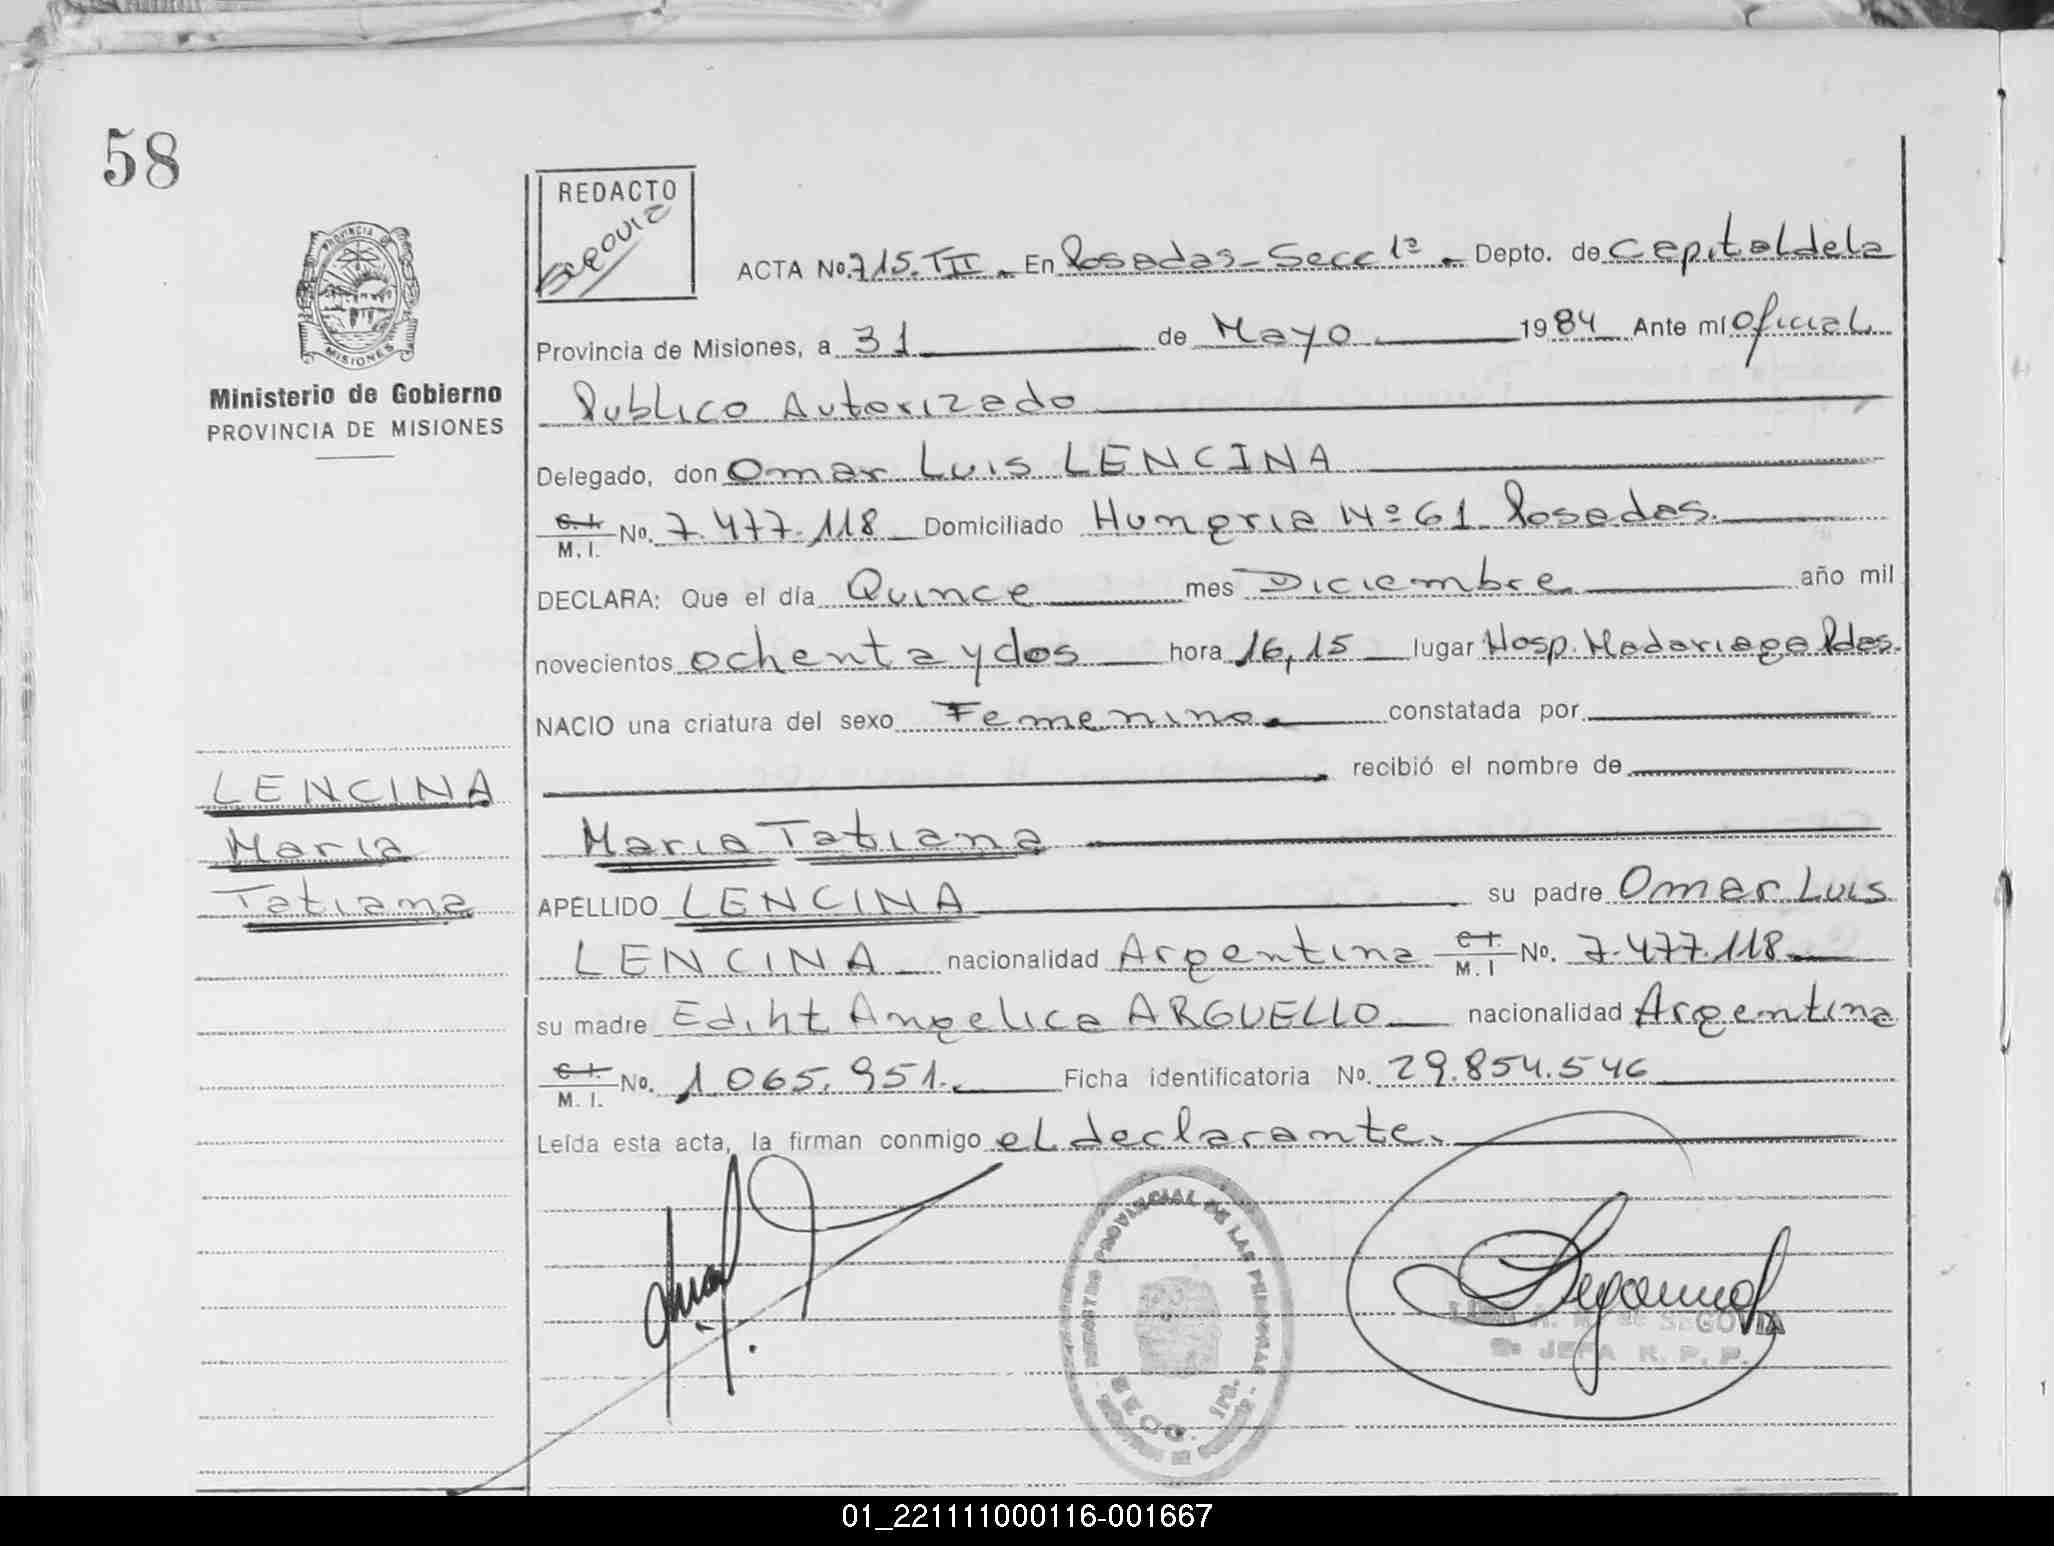 58
REDACTO
SEGOVIA
ACTA No. 715. TII. En Posadas - Secc 1ª. Depto. de Capital de la
Provincia de Misiones, a 31 de Mayo 1984 Ante mí Oficial
Publico Autorizado
PROVINCIA DE
MISIONES
Ministerio de Gobierno
PROVINCIA DE MISIONES
Delegado, don Omar Luis LENCINA
C. I.
M. I. No. 7.477.118 Domiciliado Hungria Nº 61 Posadas.
DECLARA: Que el día Quince mes Diciembre año mil
novecientos ochenta y dos hora 16,15 lugar Hosp. Madariaga Pdas.
NACIO una criatura del sexo Femenino. constatada por
recibió el nombre de
LENCINA
Maria
Tatiana
Maria Tatiana
APELLIDO LENCINA su padre Omar Luis
LENCINA nacionalidad Argentina C. I. M. I No. 7.477.118
su madre Ediht Angelica ARGUELLO nacionalidad Argentina
C. I.
M. I. No. 1.065.951. Ficha identificatoria No. 29.854.546
Leída esta acta, la firman conmigo el declarante.
REGISTRO PROVINCIAL DE LAS PERSONAS
SECC. 1ra.
SEGOVIA
JEFA R. P. P.
01_221111000116-001667